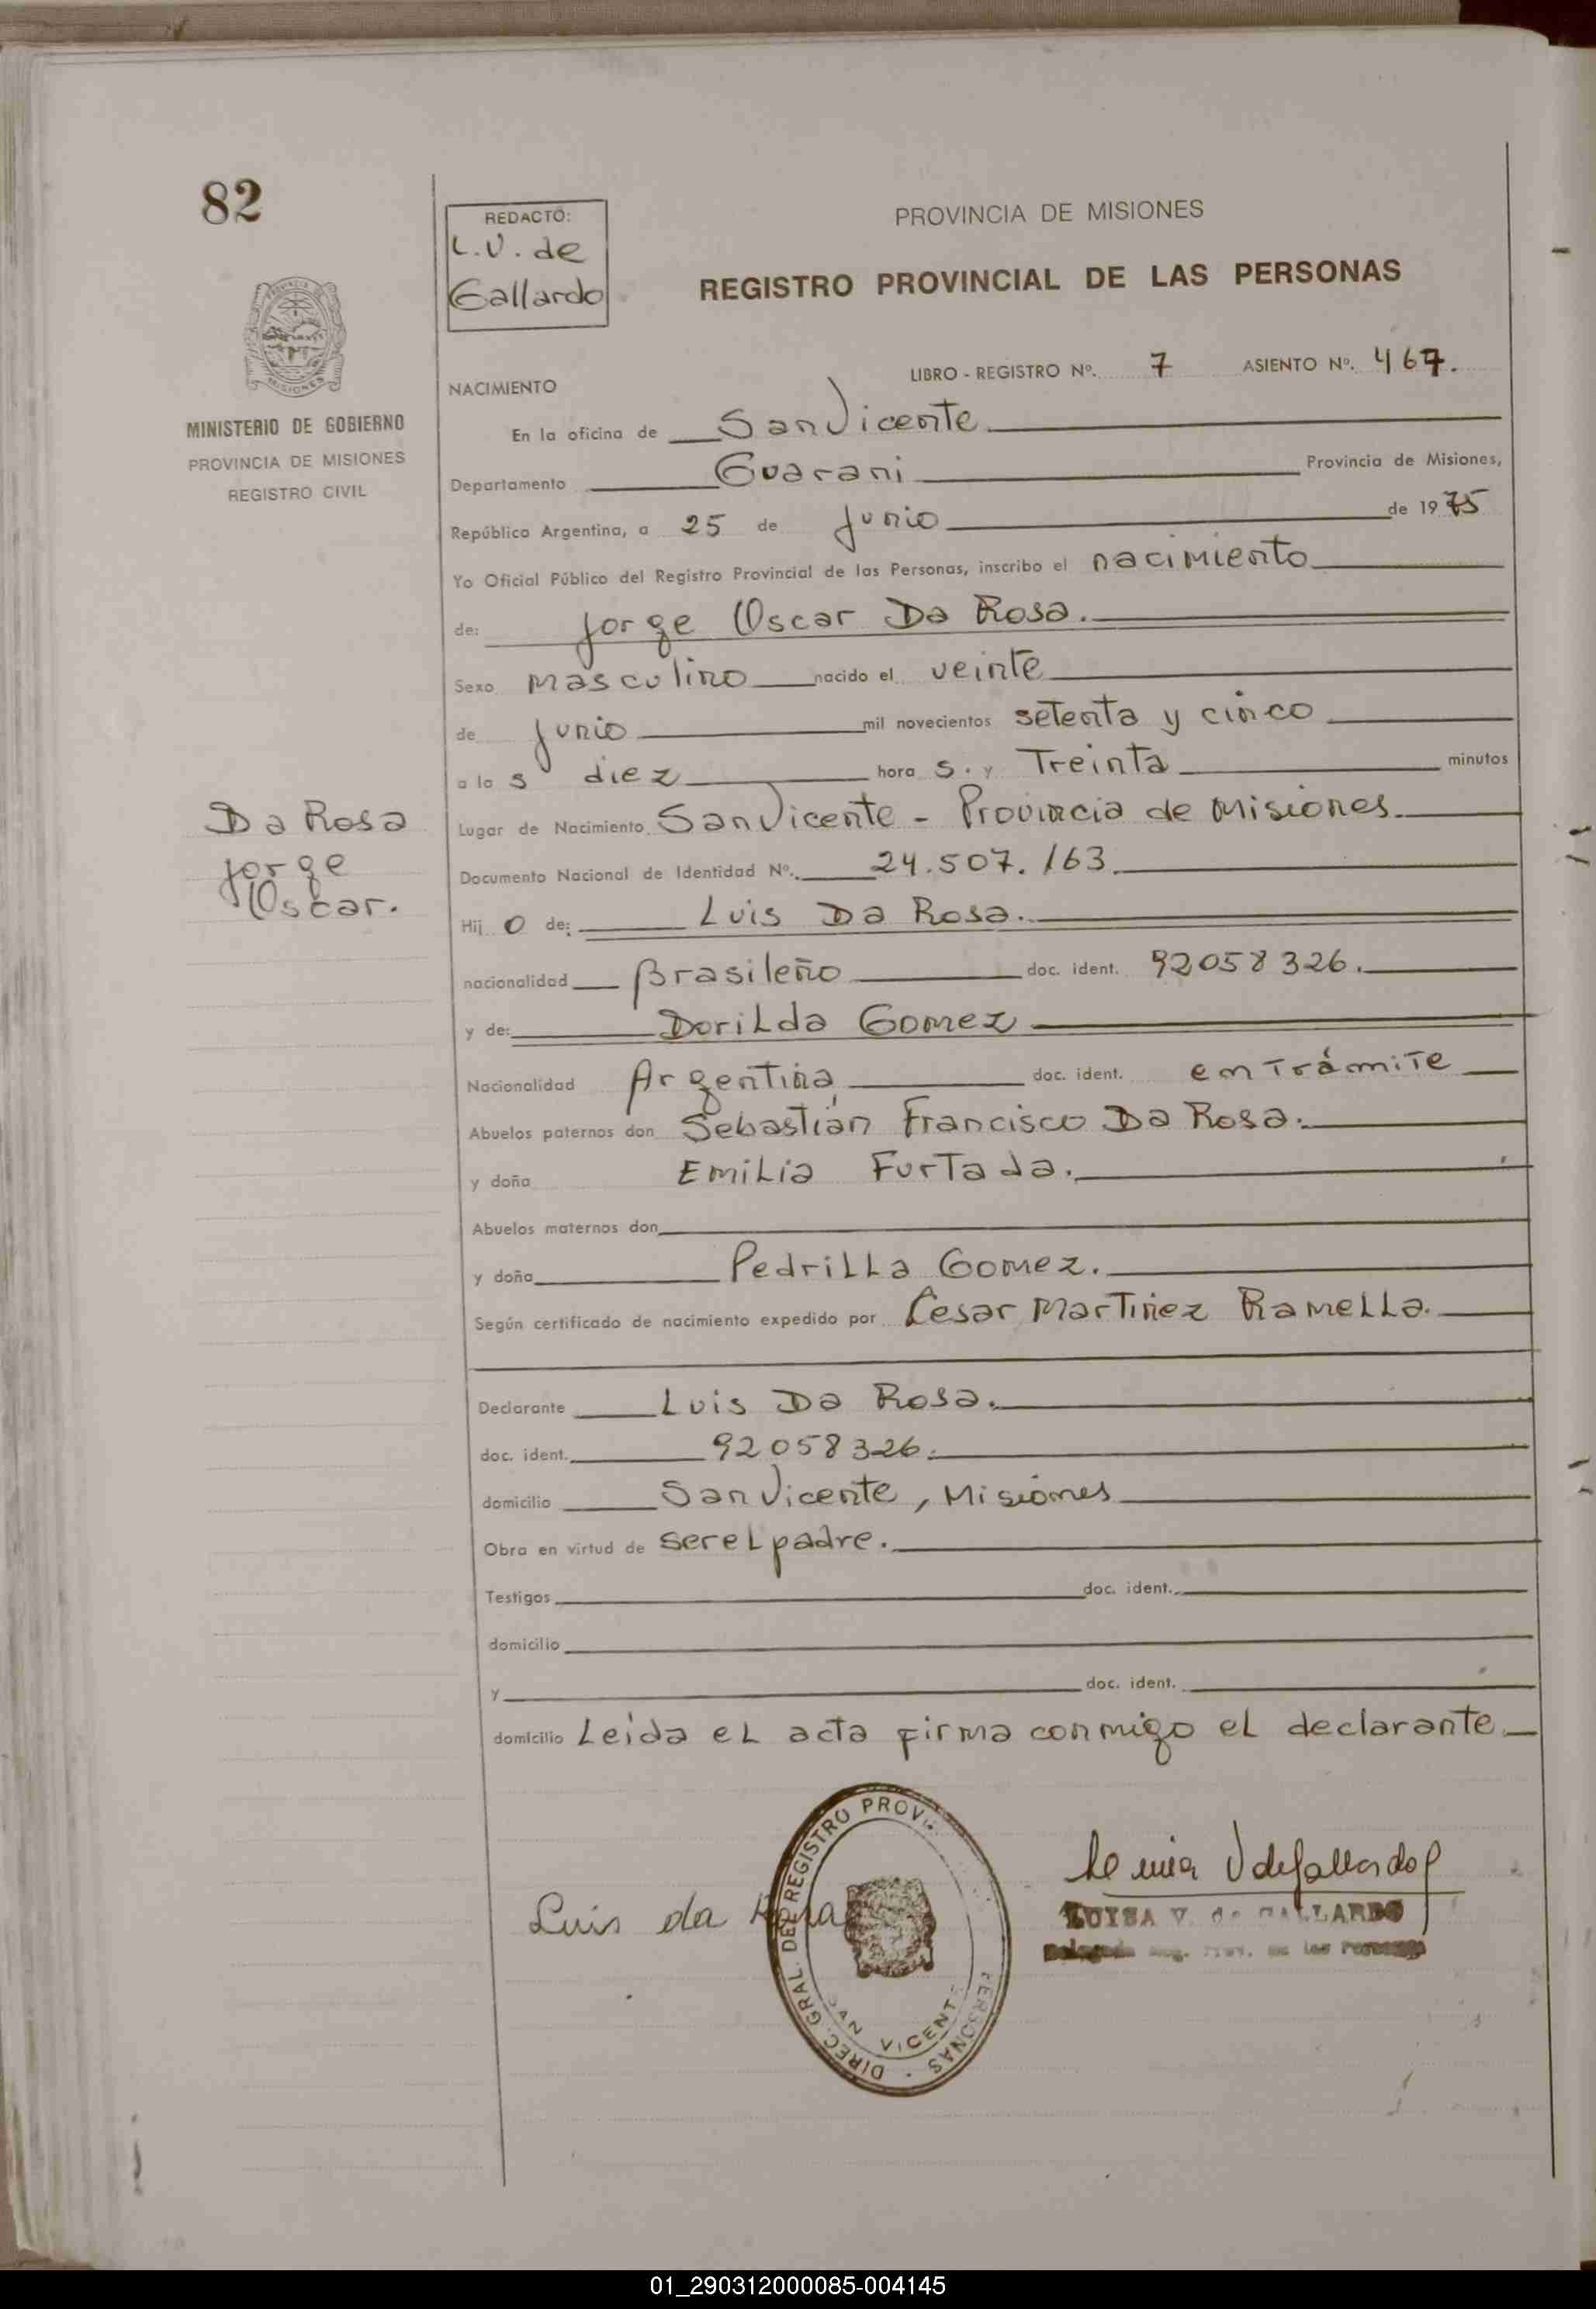 82
REDACTÓ:
L.V. de
Gallardo
PROVINCIA DE MISIONES
REGISTRO PROVINCIAL DE LAS PERSONAS
MINISTERIO DE GOBIERNO
PROVINCIA DE MISIONES
REGISTRO CIVIL
LIBRO - REGISTRO Nº. 7 ASIENTO Nº. 467.
NACIMIENTO
En la oficina de San Vicente
Departamento Guarani Provincia de Misiones,
República Argentina, a 25 de Junio de 1975
Yo Oficial Público del Registro Provincial de las Personas, inscribo el nacimiento
de: Jorge Oscar Da Rosa.
Sexo masculino nacido el veinte
de Junio mil novecientos setenta y cinco
a las diez horas. y Treinta minutos
Da Rosa
Jorge
Oscar.
Lugar de Nacimiento San Vicente - Provincia de Misiones.
Documento Nacional de Identidad Nº. 24.507.163.
Hijo de: Luis Da Rosa.
nacionalidad Brasileño doc. ident. 92058326.
y de: Dorilda Gomez
Nacionalidad Argentina doc. ident. en Trámite
Abuelos paternos don Sebastián Francisco Da Rosa.
y doña Emilia Furtada.
Abuelos maternos don
y doña Pedrilla Gomez.
Según certificado de nacimiento expedido por Cesar Martinez Ramella.
Declarante Luis Da Rosa.
doc. ident. 92058326.
domicilio San Vicente, Misiones
Obra en virtud de ser el padre.
Testigos doc. ident.
domicilio
y doc. ident.
domicilio Leida el acta firma conmigo el declarante
Luis da Rosa
DIREC. GRAL. DEL REGISTRO PROV. PERSONAS
SAN VICENTE
V de Gallardo
LUISA V. de GALLARDO
las Personas
01_290312000085-004145